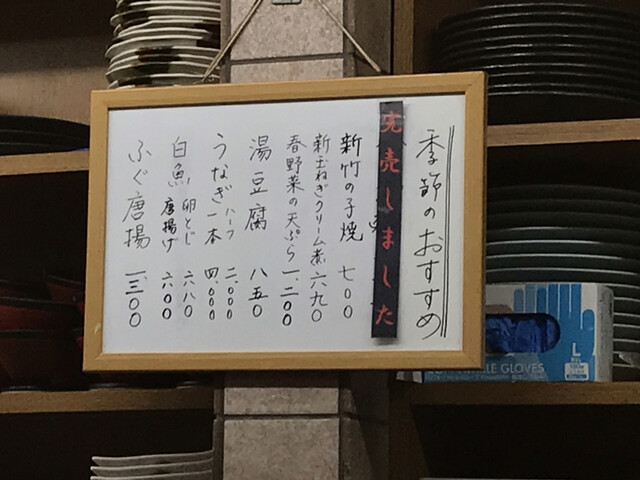 季節のおすすめ
完売しました
新竹の子焼 七〇〇
新玉ねぎクリーム煮 六九〇
春野菜の天ぷら 一、二〇〇
湯豆腐 八五〇
うなぎ ハーフ 二、〇〇〇
一本 四、〇〇〇
白魚 卵とじ 六八〇
唐揚げ 六〇〇
ふぐ唐揚 一、三〇〇
L
GLOVES